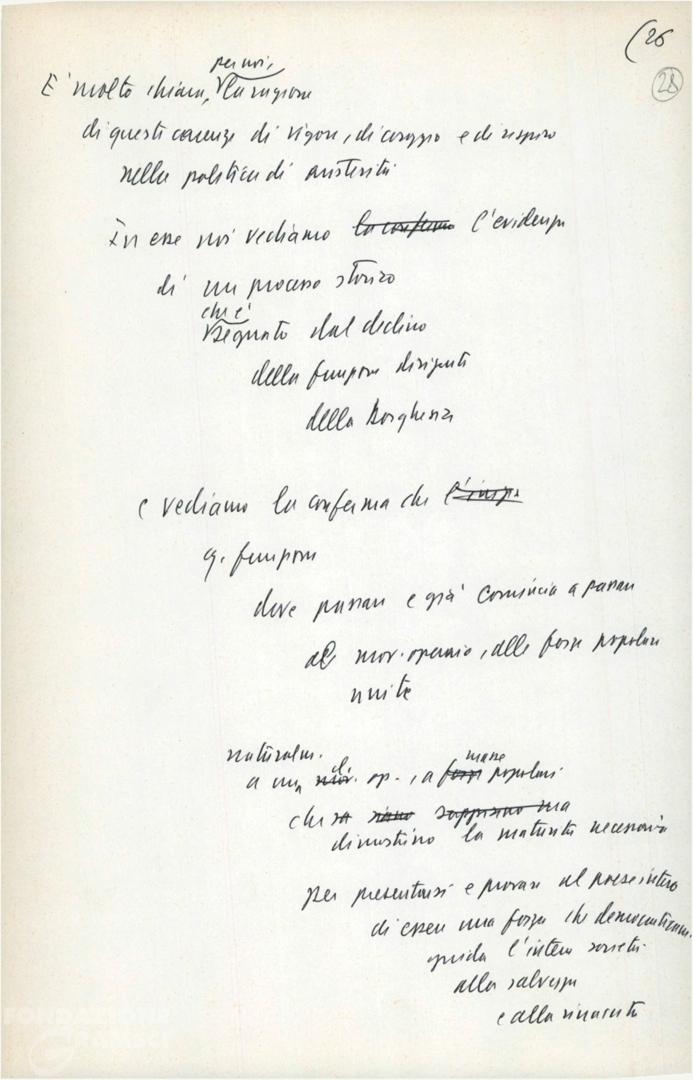 (26
28
per noi,
E' molto chiara, la ragione
di queste carenze di vigore, di coraggio e di respiro
nella politica di austerità
In esse noi vediamo la conferma l'evidenza
di un processo storico
che è
segnato dal declino
della funzione dirigente
della Borghesia
e vediamo la conferma che
q. funzione
deve passare e già comincia a passare
al mov. operaio, alle forze popolari
unite
naturalm.
a una cl. op., a masse popolari
mov. forze
che sa siano sappiano ma
dimostrino la maturità necessaria
per presentarsi e provare al paese intero
di essere una forza che democraticam.
guida l'intera società
alla salvezza
e alla rinascita
FONDAZIONE
GRAMSCI